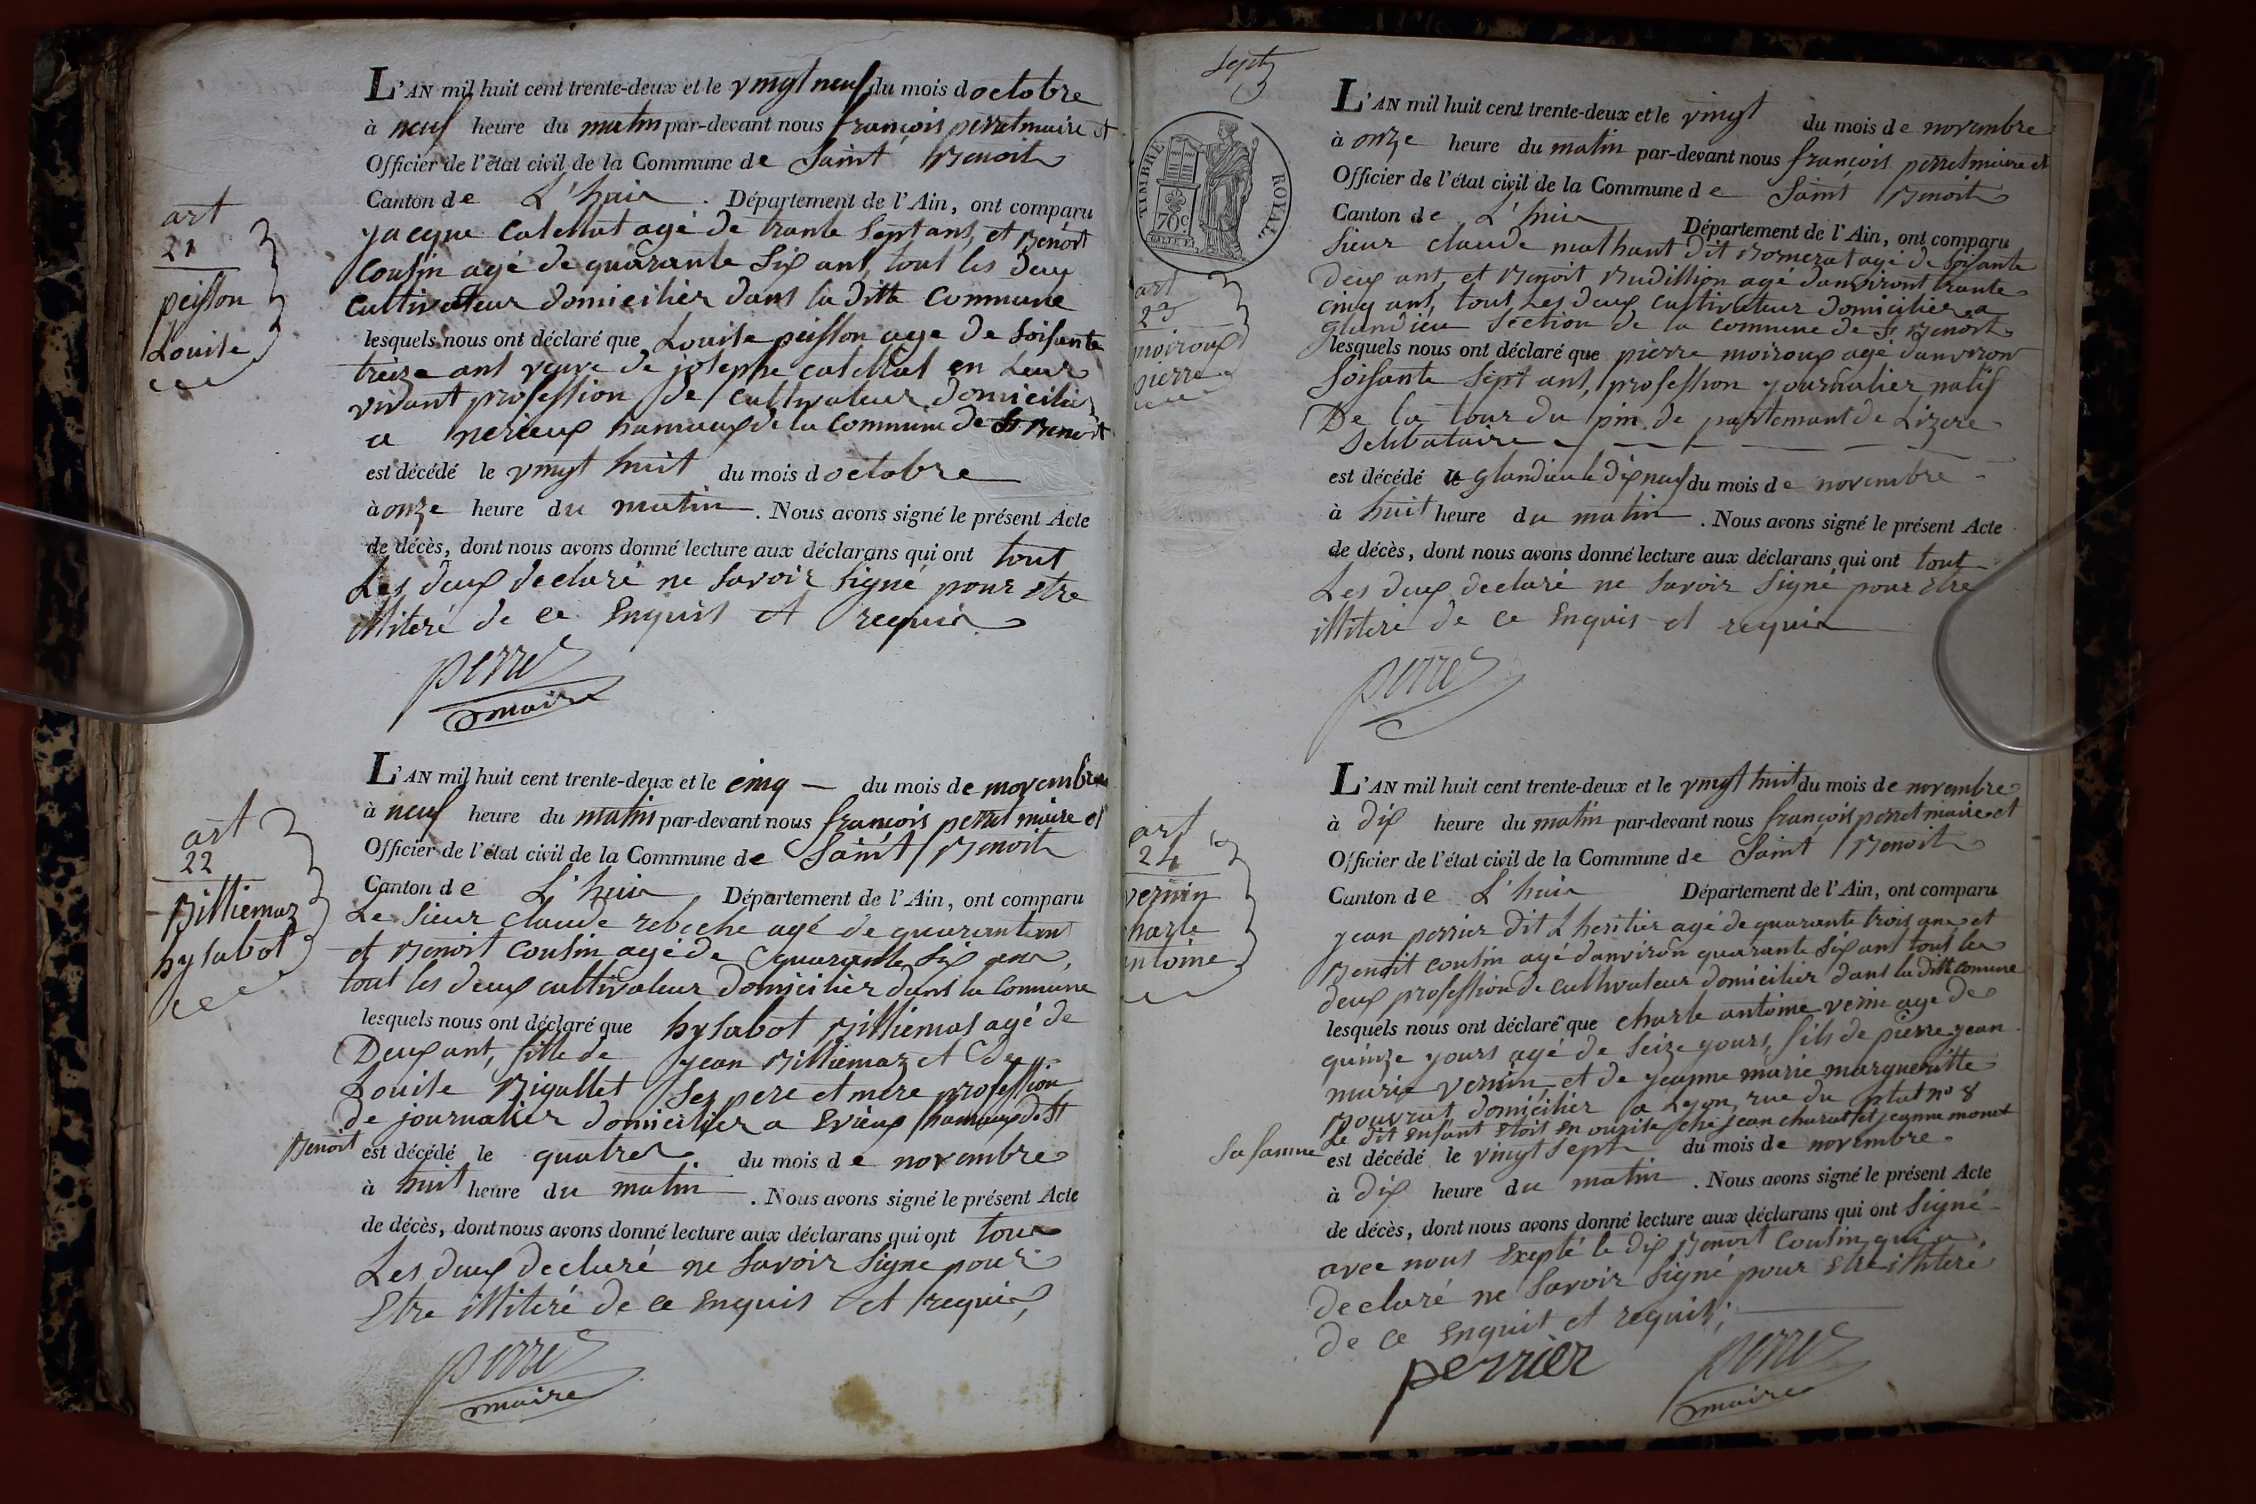 art
21
peisson
Louise
L'AN mil huit cent trente-deux et le vingt neuf du mois d octobre
à neuf heure du matin par-devant nous françois perret maire et
Officier de l'état civil de la Commune de Saint Benoit
Canton de L'huis. Département de l'Ain, ont comparu
jacque catellat agé de trante sept ans, et Benoit
Cousin agé de quarante six ant tout les deux
Cultivateur domicilier dans la ditte Commune
lesquels nous ont déclaré que Louise peisson age de soisante
treize ant veuve de josephe catellat en leur
vivant profession de cultivateur domicilier
a hameaux de la Commune de St Benoit
est décédé le vingt huit du mois d octobre
à onze heure du matin. Nous avons signé le présent Acte
de décès, dont nous avons donné lecture aux déclarans qui ont tout
Les deux declaré ne savoir signé pour etre
illiteré de ce Enquis et requis
perret
maire
art
22
Billiemaz
hysabot
L'AN mil huit cent trente-deux et le cinq du mois de novembre
à neuf heure du matin par-devant nous françois perret maire et
Officier de l'état civil de la Commune de Saint Benoit
Canton de L'huis Département de l'Ain, ont comparu
Le sieur claude rebeche agé de quarante
et Benoit Cousin agé de quarante six ans,
tout les deux cultivateur domicilier dans la Commune
lesquels nous ont déclaré que hysabot Billiemas agé de
Deux ant, fille de jean Billiemaz et de
Louise Bigallet ses pere et mere profession
de journalier domicilier a Evieux hameaux de St
Benoit est décédé le quatre du mois de novembre
à huit heure du matin. Nous avons signé le présent Acte
de décès, dont nous avons donné lecture aux déclarans qui ont tous
Les deux declaré ne savoir signe pour
Etre illiteré de ce Enquis et requis,
perret
maire
Sept
TIMBRE ROYAL
70c
art
23
moiroux
pierre
L'AN mil huit cent trente-deux et le vingt du mois de novembre
à onze heure du matin par-devant nous françois perret maire et
Officier de l'état civil de la Commune de Saint Benoit
Canton de L'huis Département de l'Ain, ont comparu
sieur claude mathant dit agé de soisante
Deux ant, et Benoit Budillion agé danviront trante
cinq ant, tout Les deux cultivateur domicilier a
glandieu section de la commune de St Benoit
lesquels nous ont déclaré que pierre moiroux agé danviron
soisante sept ant, profession journalier natif
De la tour du pin de partemant de Lizere
selibataire
est décédé a glandieu le dix neuf du mois de novembre
à huit heure du matin. Nous avons signé le présent Acte
de décès, dont nous avons donné lecture aux déclarans qui ont tout
Les deux declaré ne savoir signé pour etre
illiteré de ce Enquis et requis
perret
art
24
vernin
harle
ntoine
L'AN mil huit cent trente-deux et le vingt huit du mois de novembre
à dix heure du matin par-devant nous françois perret maire et
Officier de l'état civil de la Commune de Saint Benoit
Canton de L'huis Département de l'Ain, ont comparu
jean perrier dit L heritier agé de quarante trois ans et
Benoit cousin agé danviron quarante six ans tout les
deux profession de cultivateur domicilier dans la ditt comune
lesquels nous ont déclaré que charle antoine vernin age de
quinze yours agé de seize yours, fils de pierre jean
marie vernin et de jeanne marie margueritte
Bouvrat domicilier a Lyon, rue du plat no 8
Le dit enfant etois en nurise ché jean charat et jeanne monet
sa famme est décédé le vingt sept du mois de novembre
à dix heure du matin. Nous avons signé le présent Acte
de décès, dont nous avons donné lecture aux déclarans qui ont signé
avec nous Exepté le dix Benoit Cousin qui a
declaré ne savoir signé pour etre illiteré
de ce Enquit et requit;
perrier perret
maire